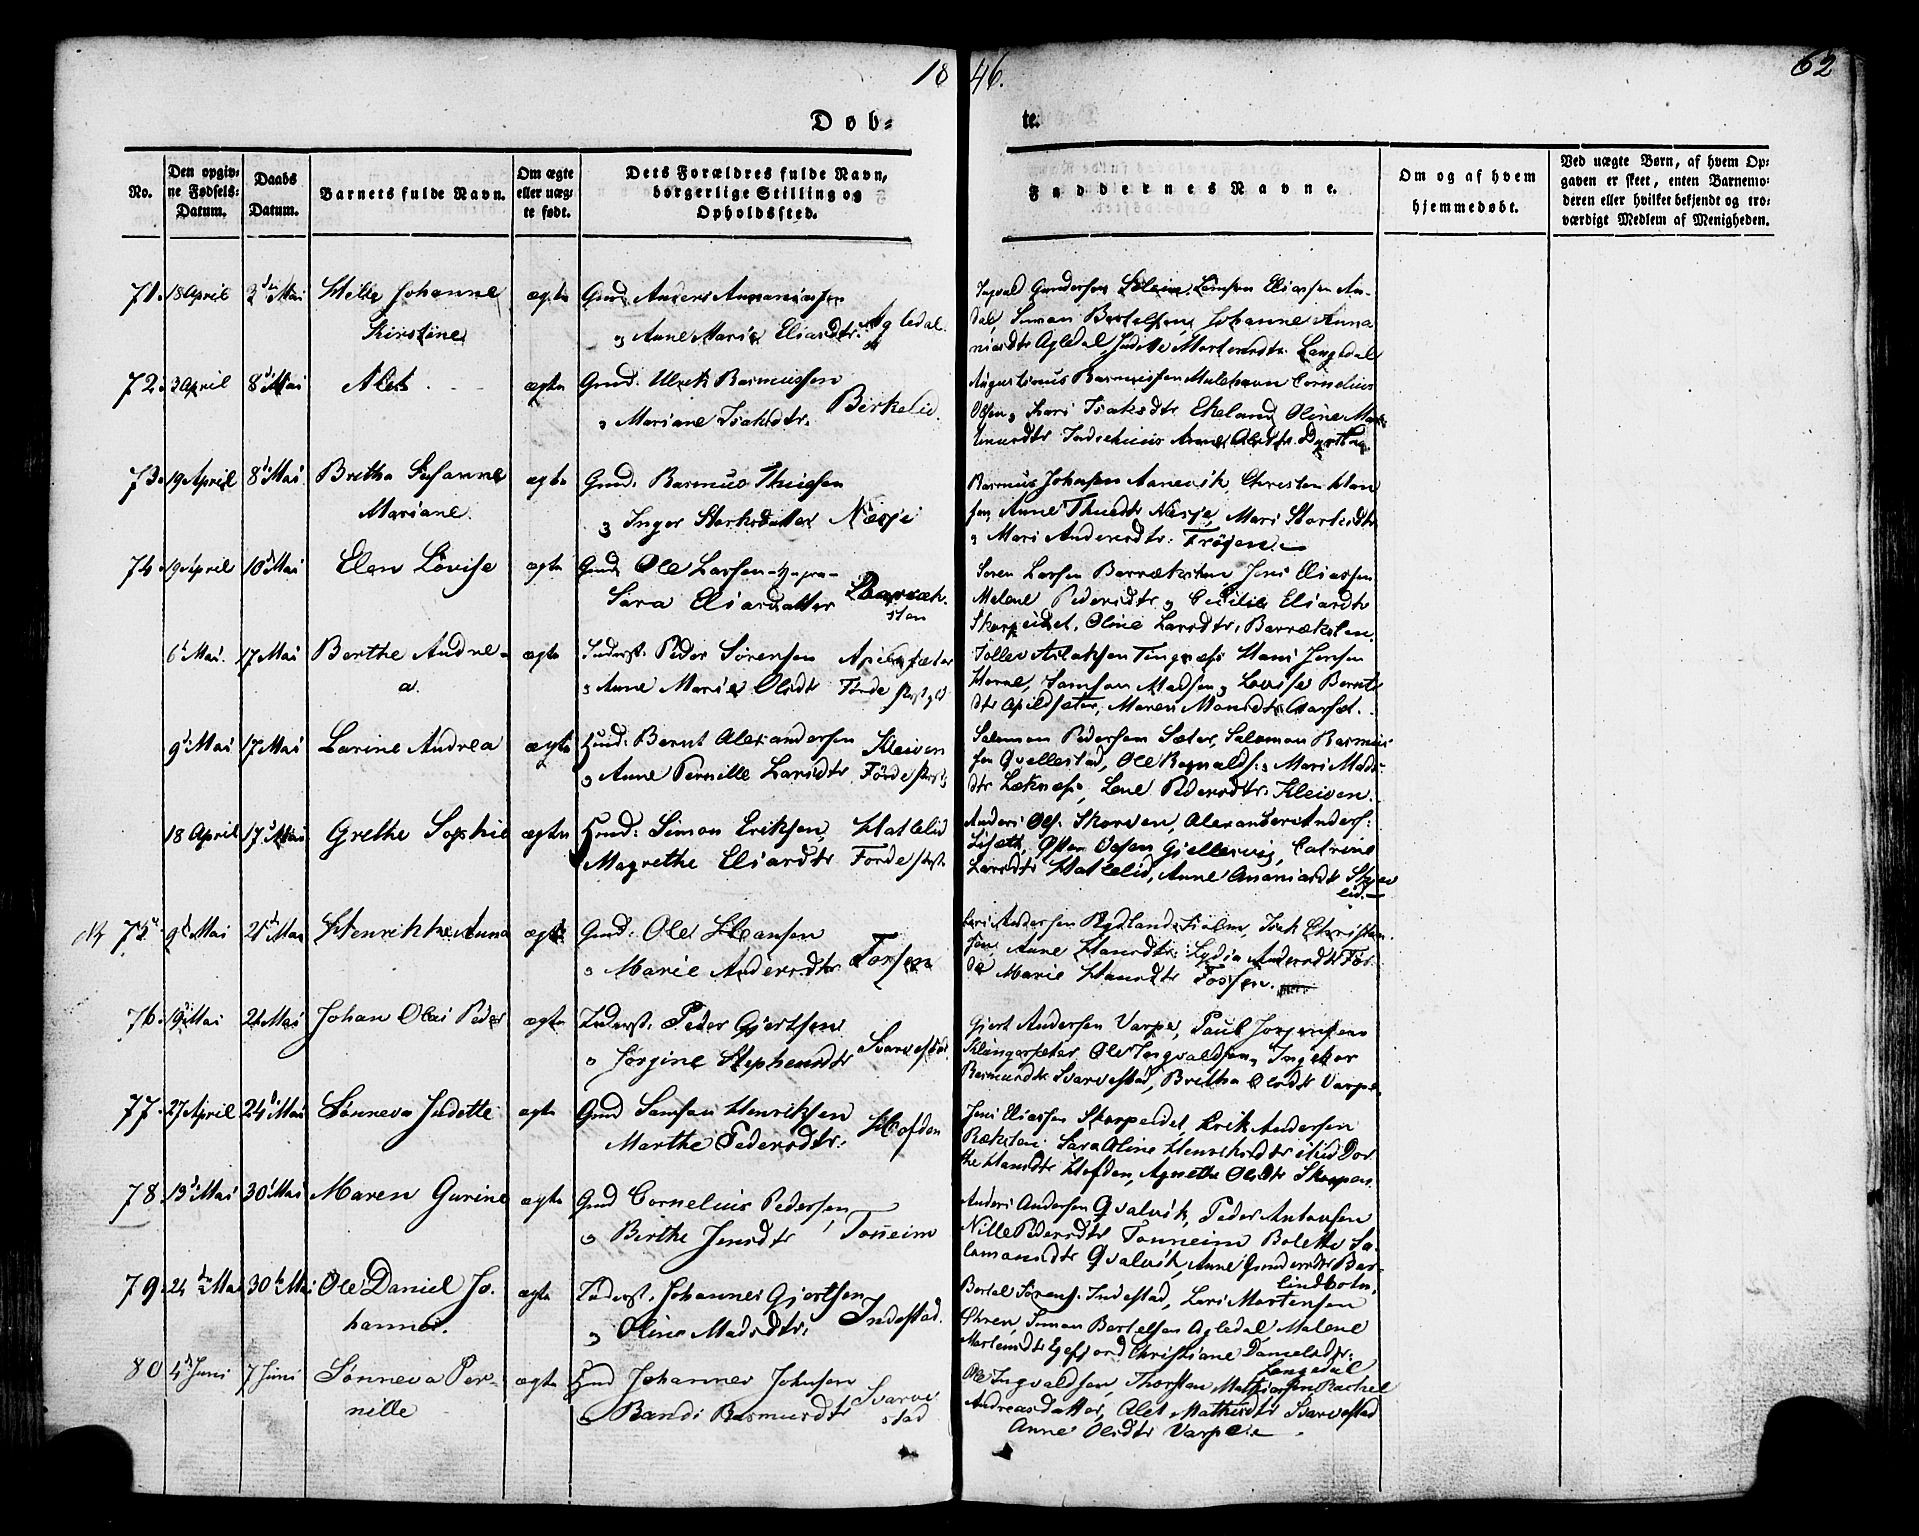 1846.
62
Døb-
te.
No.
Den opgiv-
ne Fødsels-
Datum.
Daabs
Datum.
Barnets fulde Navn.
Om ægte
eller uæg-
te født.
Dets Forældres fulde Navn,
borgerlige Stilling og
Opholdssted.
Faddernes Navne.
Om og af hvem
hjemmedøbt.
Ved uægte Børn, af hvem Op-
gaven er skeet, enten Barnemo-
deren eller hvilket bekjendt og tro-
værdigt Medlem af Menigheden.
71. 18 April 3 Mai Hille Johanne
Kirstine
ægte
Gmd Anders Ananiassen
og Anne Marie Eliasdtr. Agledal.
Ingvald Gundersen Samson Eliassen
Simon Bertelsen, Johanne Anna-
niasdtr Agledal Judithe Martensdtr. Langedal
72. 3 April 8 Mai Alet
ægte
Gmd. Ulrik Rasmussen
og Mariane Isaksdtr. Birkelid
Augustinus Rasmussen Cornelius
Olsen og Kari Isaksdtr Ekeland, Oline
Anne Olsdtr.
73. 19 April 8 Mai Britha Susanne
Mariane.
ægte
Gmd. Rasmus Thuesen
og Inger Sterksdatter Næsje
Rasmus Johnsen Aanevik, Christen Han-
sen, Anne Thuesdtr Næsje, Mari Storksdtr
og Mari Andersdtr. Frøyen.
74. 19 April 10 Mai Elen Lovise
ægte
Gmd Ole Larsen
Sara Eliasdatter Barræk-
sten
Søren Larsen Barræksten, Jens Eliassen
Malene Pedersdtr og Cecilie Eliasdtr
Skorpeidet, Oline Larsdtr. Barræksten.
6 Mai. 17 Mai Berthe Andre-
a.
ægte
Inderst. Peder Sørensen Apildsæter
og Anne Marie Olsdtr Førde Prstgj.
Tollev Aslaksen Tingnæs Hans Jensen
Horne, Samson Madsen og Lovise Bernts
dtr Apildsæter, Maren Monsdtr Aarset.
9 Mai 17 Mai Larine Andrea
ægte
Hmd. Bernt Alexandersen Kleiven
og Anne Pernille Larsdtr. Førde Prstg.
Salomon Pedersen Sæter, Salomon Rasmus-
sen Qvellestad, Ole Ragnalds. og Mari Mads-
dtr Leknæs, Lene Pedersdtr. Kleiven.
18 April 17 Mai Grethe Sophie
ægte
Hmd. Simon Eriksen, Hatlelid
Magrethe Eliasdtr Førde Prst.
Anders Ols. Skorven, Alexander Anders.
Lisæth, Gjellesvig, Catrine
Larsdtr Hatlelid, Anne Ananiasdtr
75. 9 Mai 21 Mai Henrikke Anna
ægte
Gmd. Ole Hansen
og Marie Andersdtr Fossen
Lars Andersen Rydland Isak Christen-
sen, Anne Hansdtr. Lydia Andersdtr Før-
de Marie Hansdtr Fossen.
76. 19 Mai 21 Mai Johan Olai Peder
ægte
Inderst. Peder Gjertsen
og Jørgine Stephensdtr Svarvestad
Gjert Andersen Varpe, Paul Jørgensen
Klungersæter, Ole Ingvaldsen, Ingebor
Rasmusdtr Svarvestad, Britha Olsdtr Varpe.
77. 27 April 24 Mai Sønneva Judette
ægte
Gmd Samson Henriksen
Marthe Pedersdtr. Hofden
Jens Eliassen Skorpeidet, Erik Andersen
Ræksten. Sara Oline Henriksdtr Dor-
the Hansdtr Hofden, Agnethe Olsdtr Skorpen.
78. 13 Mai 30 Mai Maren Gurine
ægte
Gmd Cornelius Pedersen,
og Berthe Jensdtr Tonheim
Anders Andersen Qvalvik, Peder Antonsen
Nille Pedersdtr Tonheim Bolette Sa-
lomonsdtr Qvalvik, Anne Gundersdtr Bar-
lindbotn.
79. 21 Mai 30 Mai Ole Daniel Jo-
hannes.
ægte
Inderst. Johannes Gjertsen
og Oline Madsdtr. Indestad.
Bertel Sørens. Indestad, Lars Mortensen
Simon Bertelsen Agledal Malene
Martensdtr Christiane Danielsdtr.
Langedal
80 4 Juni 7 Juni Sønneva Per-
nille
ægte
Hmd Johannes Johnsen
og Randi Rasmusdtr Svarve-
stad
Ole Ingvaldsen, Thorsten Mathiassen Rachel
Andreasdatter, Alet Mathisdtr Svarvestad
Anne Olsdtr Varpe